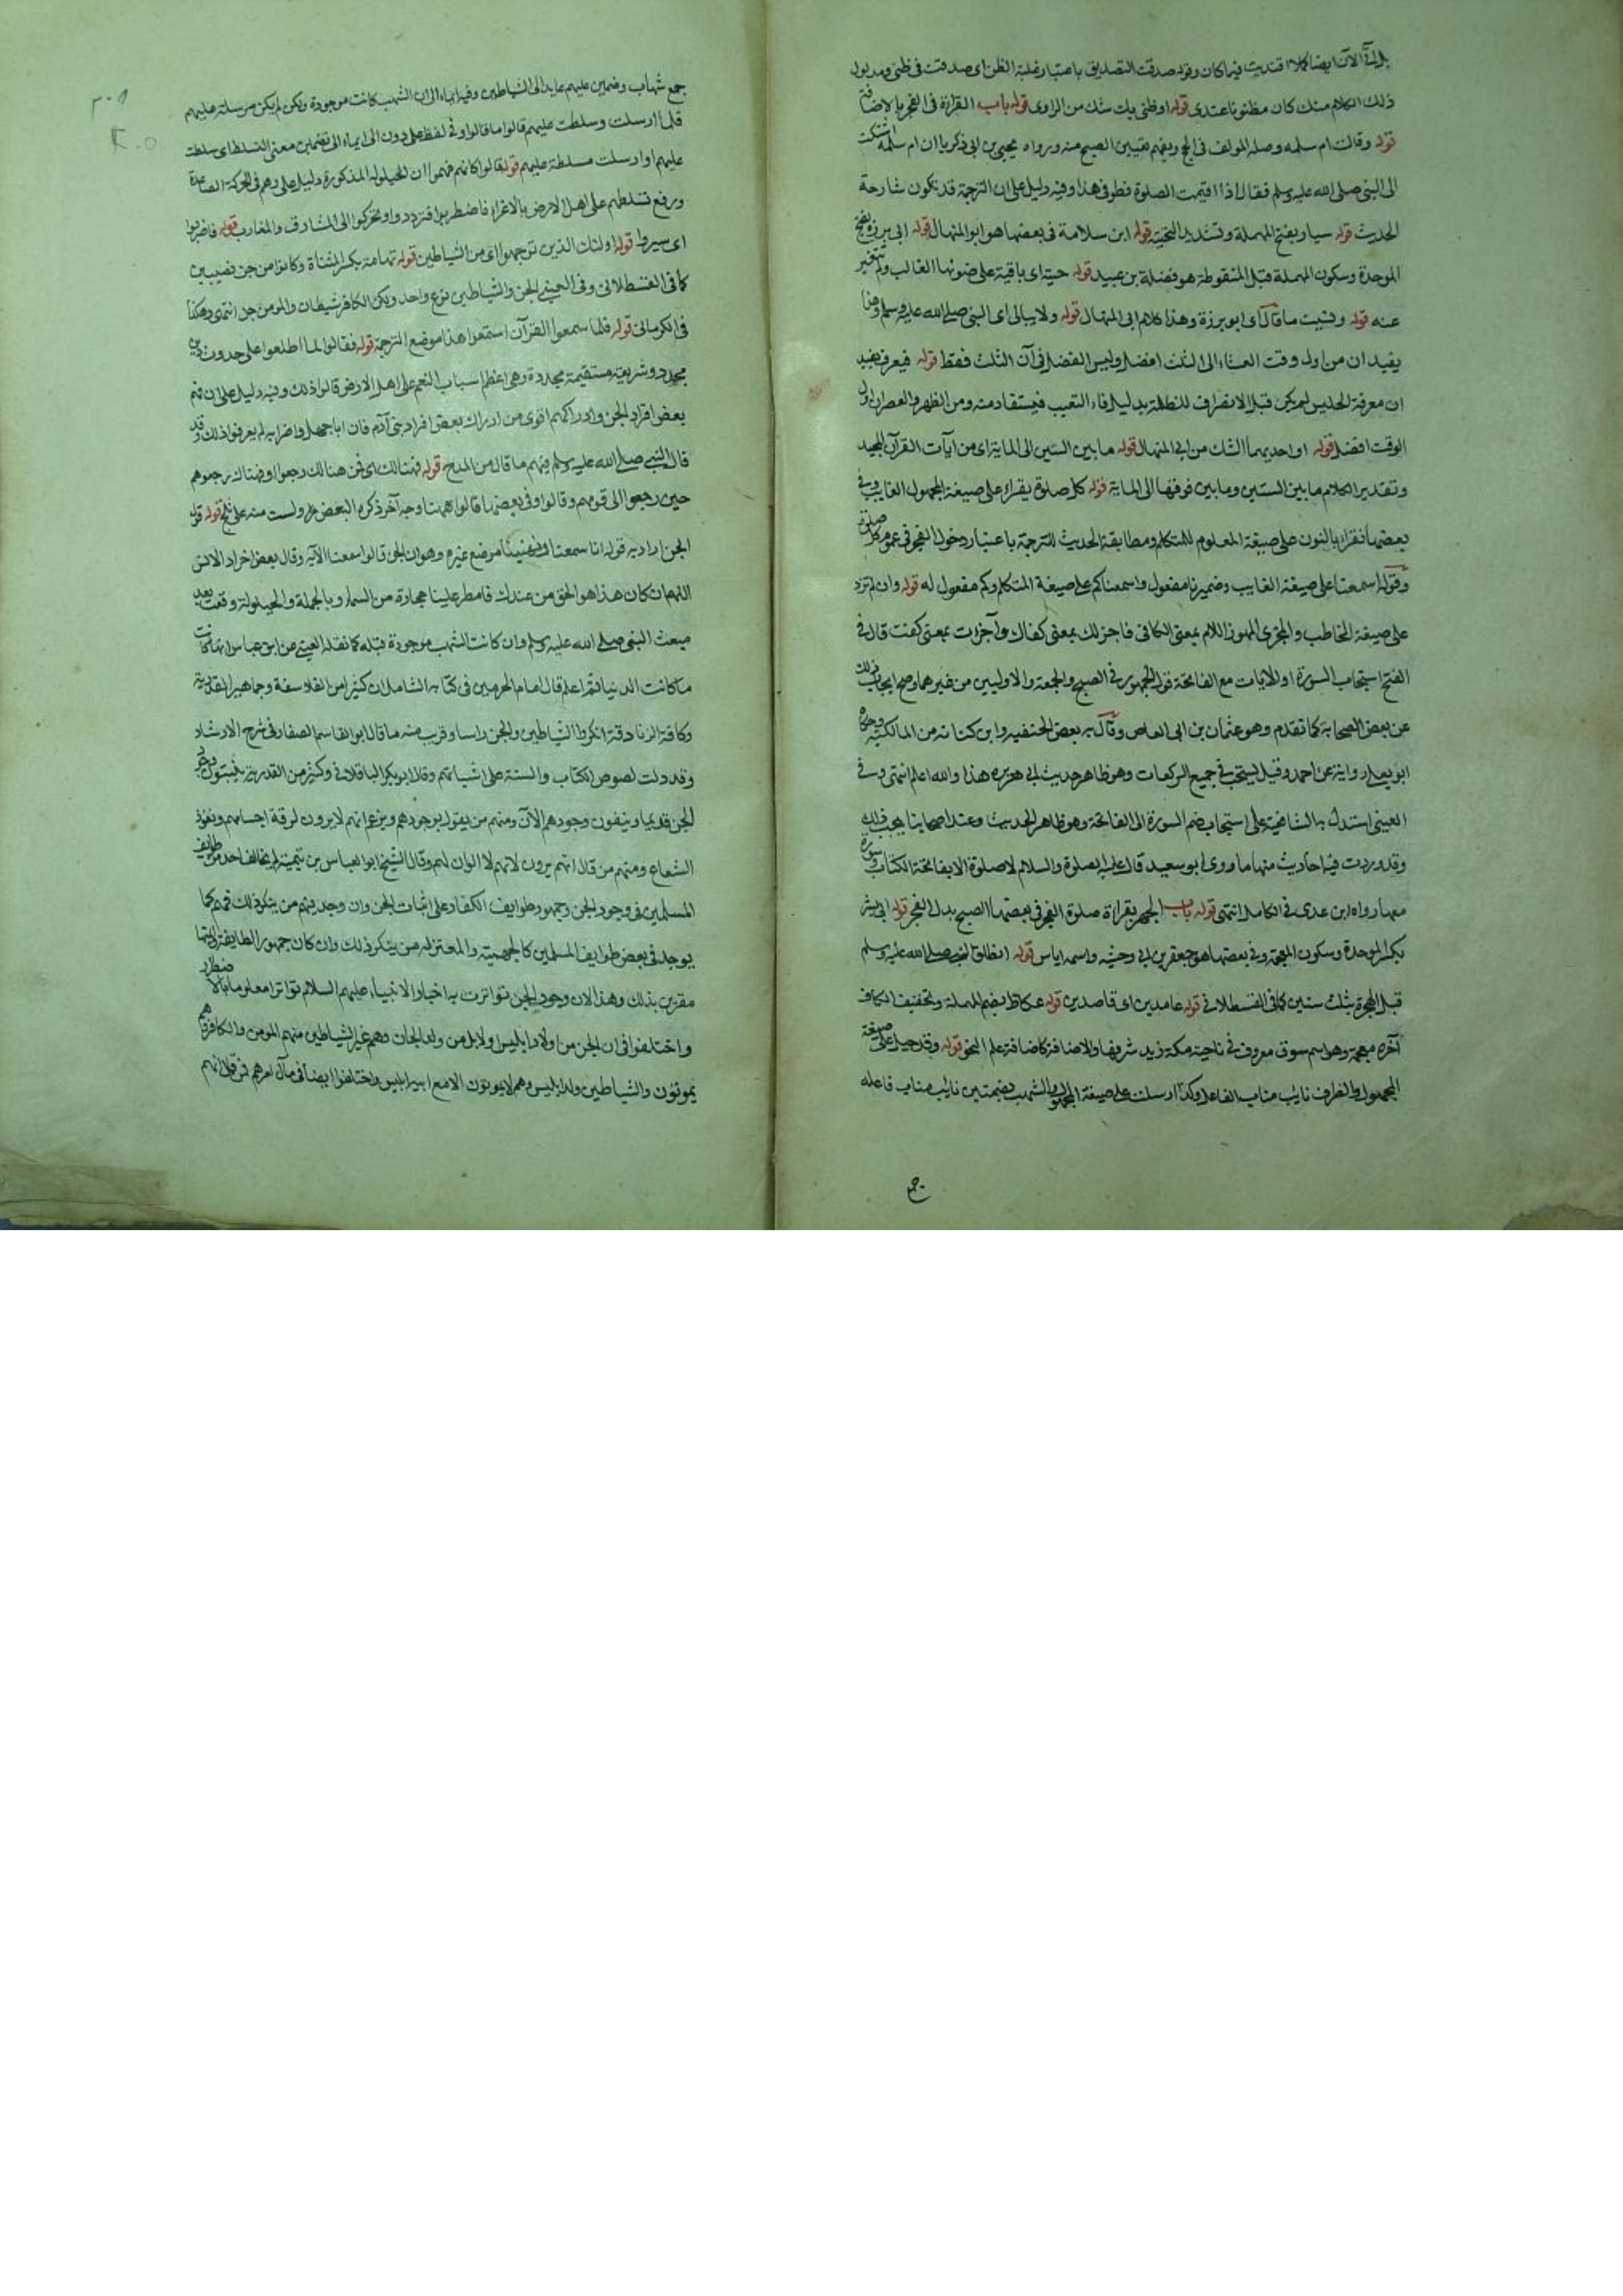 ذلك الكلام منك كان مظنونا عندى قوله او ظنى بك شك من الراوى قوله باب القراءة فى الفجر بالاضافة
قوله وقالت ام سلمه وصله المولف فى الحج ويفهم تعيين الصبح منه ورواه يحيى بن ابى زكريا ان ام سلمة اشتكت
الى النبى صلى الله عليه وسلم فقال اذا اقيمت الصلوة فطوفى هذا وفيه دليل على ان الترجمة قد تكون شارحة
الحديث قوله سيار بفتح المهملة وتشديد التحتية قوله ابن سلامة فى بعضها هو ابو المنهال قوله ابى برزة بفتح
الموحدة وسكون المهملة قبل المنقوطة هو فضلة بن عبيد قوله حية اى باقية على ضوئها الغالب ولم تتغير
عنه قوله ونسيت ما قال اى ابو برزة وهذا كلام ابى المنهال قوله ولا يبالى اى النبى صلى الله عليه وسلم وهذا
يفيد ان من اول وقت العشاء الى الثلث افضل وليس الفضل فى آن الثلث فقط قوله فيعرف يفيد
ان معرفة الجليس لم يكن قبل الانصراف للظلمة بدليل فاء التعقيب فيستفاد منه ومن الظهر والعصر ان اول
الوقت افضل قوله او احديهما الشك من ابى المنهال قوله ما بين الستين الى الماية اى من آيات القرآن المجيد
وتقدير الكلام ما بين الستين وما بين فوقها الى الماية قوله كل صلوة يقراء على صيغة المجهول الغايب وفى
بعضها نقراء بالنون على صيغة المعلوم للمتكلم ومطابقة الحديث للترجمة باعتبار دخول الفجر فى عموم كل صلوة
وقوله اسمعنا على صيغة الغايب وضمير نا مفعول واسمعناكم على صيغة المتكلم وكم مفعول له قوله وان لم تزد
على صيغة المخاطب والمجزى المهموز اللام بمعنى الكافى فاجزلك بمعنى كفاك وآجزات بمعنى كفت قال فى
الفتح استحباب السورة او الايات مع الفاتحة قول الجمهور فى الصبح والجمعة والاوليين من غيرهما وصح ايجاب ذلك
عن بعض الصحابة كما تقدم وهو عثمان بن ابى العاص وقال به بعض الحنفيه وابن كنانه من المالكية وحكاه
ابو يعلى رواية عن احمد وقيل يستحب فى جميع الركعات وهو ظاهر حديث ابى هريره هذا والله اعلم انتهى وفى
العينى استدل به الشافعية على استحباب ضم السورة الى الفاتحة وهو ظاهر الحديث وعند اصحابنا يجب ذلك
وقد وردت فيه احاديث منها ما روى ابو سعيد قال عليه الصلوة والسلام لا صلوة الا بفاتحة الكتاب وسورة
معها رواه ابن عدى فى الكامل انتهى قوله باب الجهر بقراءة صلوة الفجر فى بعضها الصبح بدل الفجر قوله ابى بشر
بكسر الموحدة وسكون المعجمة وفى بعضها هو جعفر بن ابى وحشيه واسمه اياس قوله انطلق النبى صلى الله عليه وسلم
قبل الهجرة بثلث سنين كما فى القسطلانى قوله عامدين اى قاصدين قوله عكاظ بضم المهملة وتخفيف الكاف
آخره معجمة وهو اسم سوق معروف فى ناحية مكة زيد شرفها والاضافة كاضافة علم النحو قوله وقد حيل على صيغة
المجهول والظرف نايب مناب الفاعل وكذا ارسلت على صيغة المجهول والشهب بضمتين نايب مناب فاعله
جمع شهاب وضمير عليهم عايد الى الشياطين وفيه ايماء الى ان الشهب كانت موجودة ولكن لم يكن مرسلة عليهم
فلما ارسلت وسلطت عليهم قالوا ما قالوا وفى لفظ على دون الى ايماء الى تضمين معنى التسلط اى سلطة
عليهم او ارسلت مسلطة عليهم قوله قالوا كانهم فهموا ان الحيلوله المذكورة دليل على وهم فى الحركة الصاعدة
ورفع تسلطهم على اهل الارض بالاغراء فاضطربوا فترددوا وتحركوا الى المشارق والمغارب قوله فاضربوا
اى سيروا قوله اولئك الذين توجهوا اى من الشياطين قوله تهامة بكسر المثناة وكانوا من جن نصيبين
كما فى القسطلانى وفى العينى الجن والشياطين نوع واحد ولكن الكافر شيطان والمومن جن انتهى وهكذا
فى الكرمانى قوله فلما سمعوا القرآن استمعوا هذا موضع الترجمة قوله فقالوا لما اطلعوا على حدوث دين
مجدد وشريعة مستقيمة مجددة وهى اعظم اسباب النعم على اهل الارض قالوا ذلك وفيه دليل على ان فهم
بعض افراد الجن وادراكهم اقوى من ادراك بعض افراد بنى آدم فان ابا جهل واضرابه لم يعرفوا ذلك وقد
قال النبى صلى الله عليه وسلم فيهم ما قال من المدح قوله فهنالك اى فمن هنالك رجعوا وهناك رجعوهم
حين رجعوا الى قومهم وقالوا وفى بعضها قالوا ههنا وجه آخر ذكره البعض ولست منه على ثلج قوله قول
الجن اراد به قوله انا سمعنا غيره وهو ان الجن قالوا سمعنا الآية وقال بعض افراد الانس
اللهم ان كان هذا هو الحق من عندك فامطر علينا حجارة من السماء وبالجملة والحيلولة وقعت بعد
مبعث النبى صلى الله عليه وسلم وان كانت الشهب موجودة قبله كما نقله العينى عن ابن عباس انها كانت
ما كانت الدنيا ثم اعلم قال امام الحرمين فى كتابه الشامل ان كثيرا من الفلاسفة وجماهير القدرية
وكافة الزنادقة انكروا الشياطين والجن راسا وقرب منه ما قال ابو القاسم الصفار فى شرح الارشاد
وقد دلت نصوص الكتاب والسنة على اثباتهم وقال ابو بكر الباقلانى وكثير من القدرية يثبتون وجود
الجن قديما وينفون وجودهم الآن ومنهم من يقول بوجودهم ويزعم انهم لا يرون لرقة اجسامهم ونفوذ
الشعاع ومنهم من قال انهم يرون لانهم لا الوان لهم وقال الشيخ ابو العباس بن تيمية لم يخالف احد من طوايف
المسلمين فى وجود الجن وجمهور طوايف الكفار على اثبات الجن وان وجد فيهم من ينكر ذلك فهم كما
يوجد فى بعض طوايف المسلمين كالجهمية والمعتزله من ينكر ذلك وان كان جمهور الطايفة وائمتها
مقرين بذلك وهذا لان وجود الجن تواترت به اخبار الانبياء عليهم السلام تواترا معلوما بالاضطرار
واختلفوا فى ان الجن من اولاد ابليس اولا بل من ولد الجان وهم غير الشياطين منهم المومن والكافر وهم
يموتون والشياطين ولد ابليس وهم لا يموتون الا مع ابيهم ابليس واختلفوا ايضا فى مآل امرهم فمن قال انهم